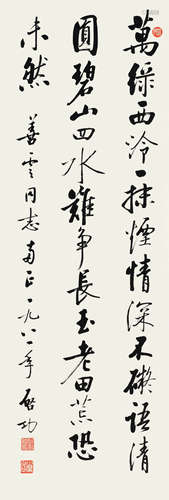 萬綠西泠一抹煙情深不礙語清
圓碧山四水難爭長玉老田荒恐
未然
善雲同志両正一九八一年啟功